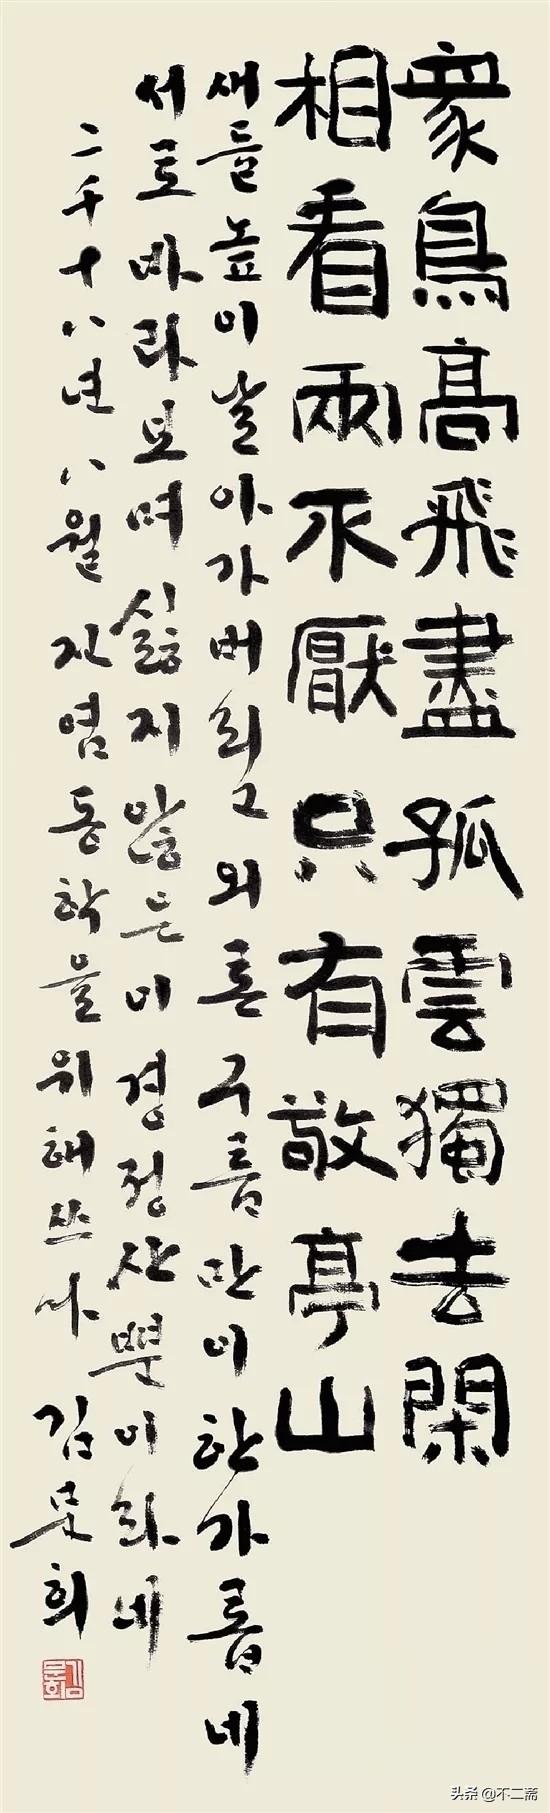 衆鳥高飛盡孤雲獨去閑
相看兩不厭只有敬亭山
새들높이날아가버리고외론구름만이한가롭네
서로바라보며싫지않은이경정산뿐이라네
二千十八년八월 동학을위해쓰다 김문희
头条 @不二斋